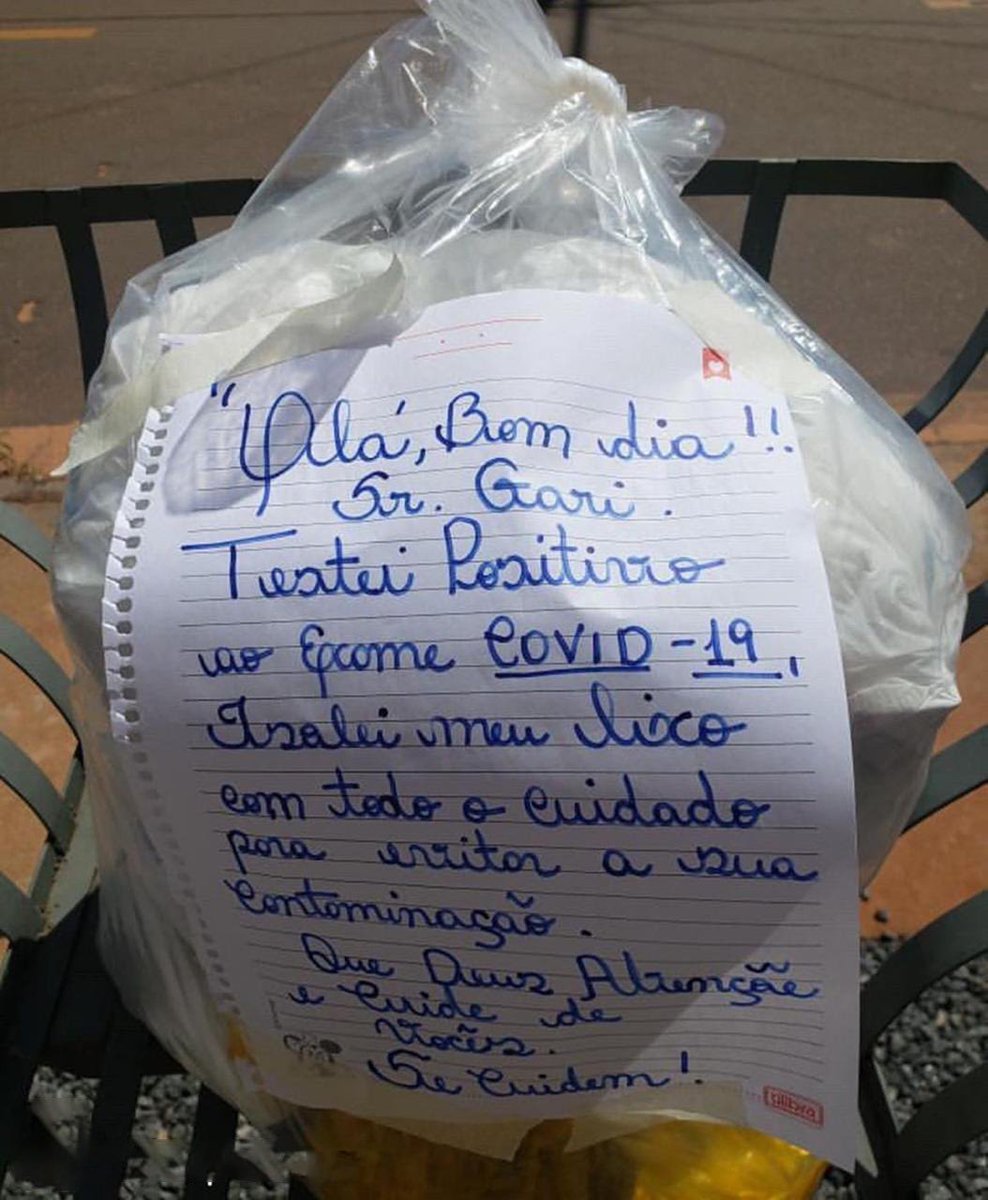 "Olá, Bom dia!!
Sr. Gari.
Testei Positivo
ao Exame COVID-19,
Isolei meu lixo
com todo o cuidado
para evitar a sua
contaminação.
Que Deus Abençõe
e cuide de
vocês.
Se cuidem!
tilibra